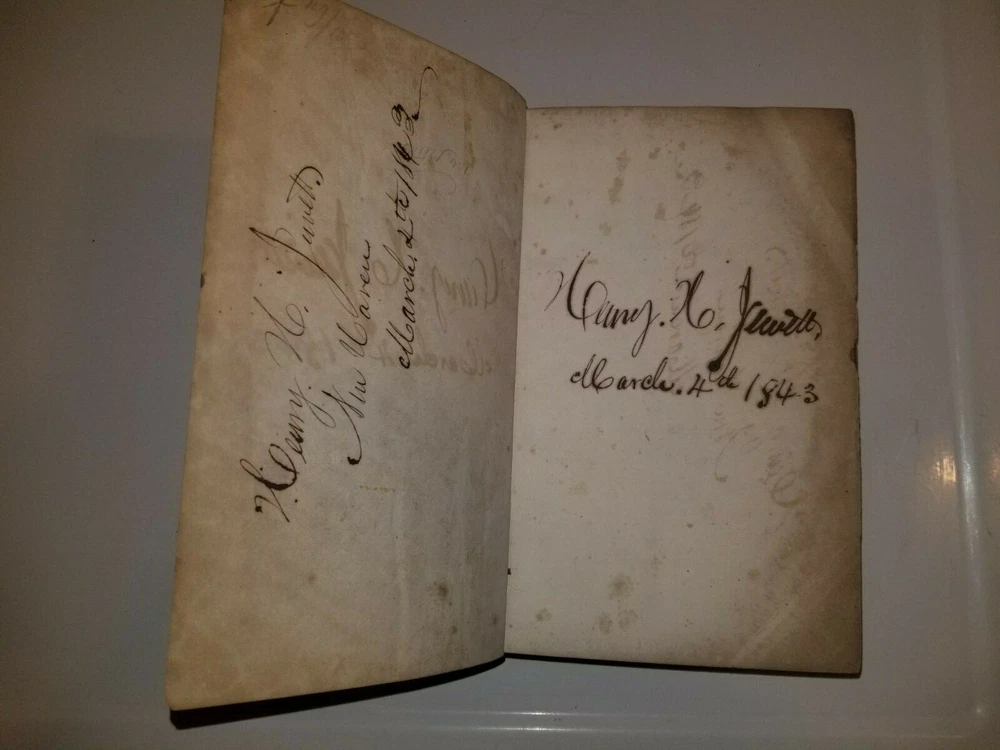 Henry. H. Jewett.
New Haven
March. 4th 1843
Henry. H. Jewett,
March. 4th 1843